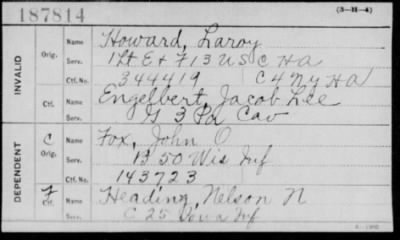 187814
(3—H—4)
INVALID
Orig. Name Howard, Laroy
Serv. 1 Lt E & F 13 U S C H A
Ctf. No. 344419 C 4 N Y H A
Ctf. Name Engelbert, Jacob Lee
Serv. G 3 Pa Cav
DEPENDENT
C Orig. Name Fox, John O
Serv. B 50 Wis Inf
Ctf. No. 143723
Ctf. Name Heading, Nelson N
Serv. C 25 Iowa Inf